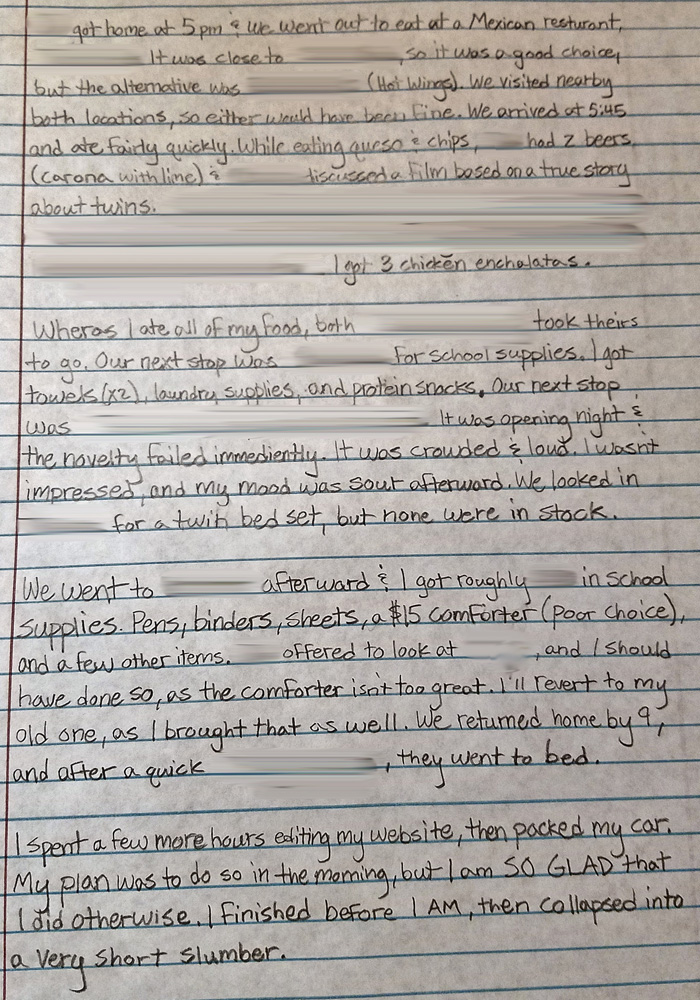 got home at 5pm & we went out to eat at a Mexican resturant,
It was close to , so it was a good choice,
but the alternative was (Hot Wings). We visited nearby
both locations, so either would have been fine. We arrived at 5:45
and ate fairly quickly. While eating queso & chips, had 2 beers
(corona with lime) & discussed a film based on a true story
about twins.
I got 3 chicken enchalatas.
Wheras I ate all of my food, both took theirs
to go. Our next stop was for school supplies. I got
towels (x2), laundry supplies, and protein snacks. Our next stop
was It was opening night &
the novelty failed immediently. It was crowded & loud. I wasn't
impressed, and my mood was sour afterward. We looked in
for a twin bed set, but none were in stock.
We went to afterward & I got roughly in school
supplies. Pens, binders, sheets, a $15 comforter (poor choice),
and a few other items. offered to look at , and I should
have done so, as the comforter isn't too great. I'll revert to my
old one, as I brought that as well. We returned home by 9,
and after a quick , they went to bed.
I spent a few more hours editing my website, then packed my car.
My plan was to do so in the morning, but I am SO GLAD that
I did otherwise. I finished before 1 AM, then collapsed into
a very short slumber.